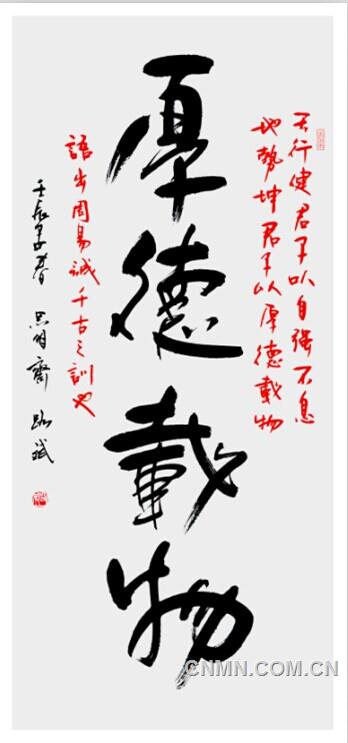 天行健君子以自强不息
地勢坤君子以厚德載物
厚德載物
語出周易誠千古之訓也
壬辰 春 齋 斌
CNMN.COM.CN